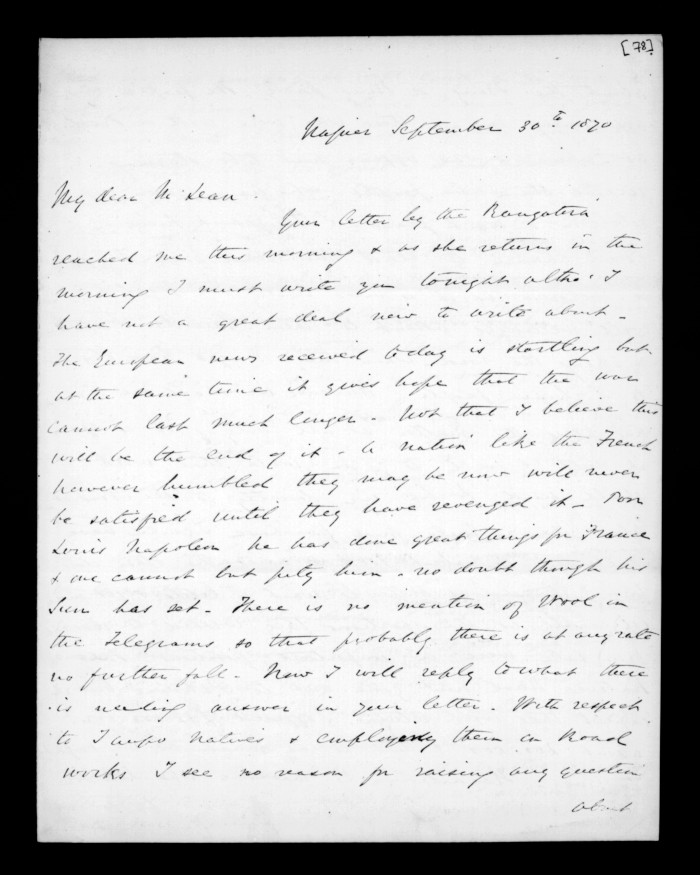 [78]
Napier September 30th 1870
My dear McLean.
Your letter by the Rangatira
reached me this morning & as she returns in the
morning I must write you tonight altho' I
have not a great deal new to write about -
The European news received today is startling but
at the same time it gives hope that the war
cannot last much longer. Not that I believe this
will be the end of it - A nation like the French
however humbled they may be now will never
be satisfied until they have revenged it - Poor
Louis Napoleon he has done great things for France
& one cannot but pity him - no doubt though his
Sun has set - There is no mention of Wool in
the Telegrams so that probably there is at any rate
no further fall - Now I will reply to what there
is needing answer in your letter. With respect
to Taupo Natives & employing them on Road
works I see no reason for raising any question
about